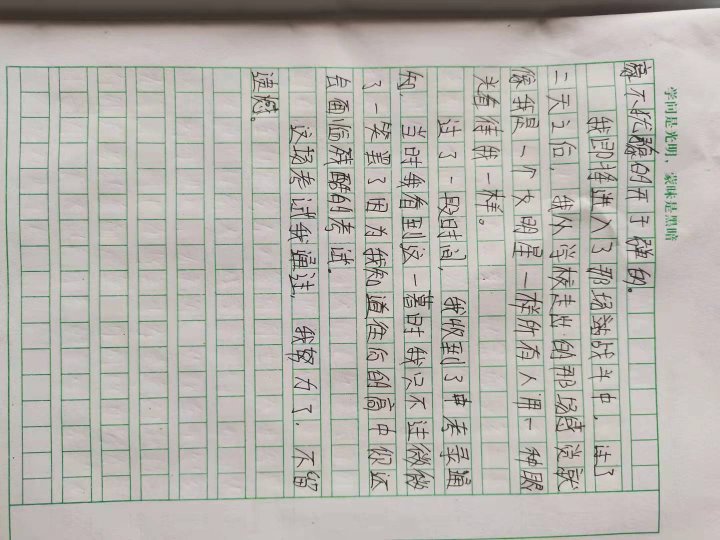 学问是光明，蒙昧是黑暗
离不犹豫的开于硬的。
我即将进入了那场站战斗中，过了
三天之后，我从学校走出的那场考说就
像我是一个大明星一样所有人用一种眼
光看待我一样。
过了一段时间，我收到了中考录通
知，当时我看到这一喜时我只不过微微
了一笑罢了因为我知道往后的高中你还
会面临残酷的考试。
这场考试我通过，我努力了，不留
遗憾。